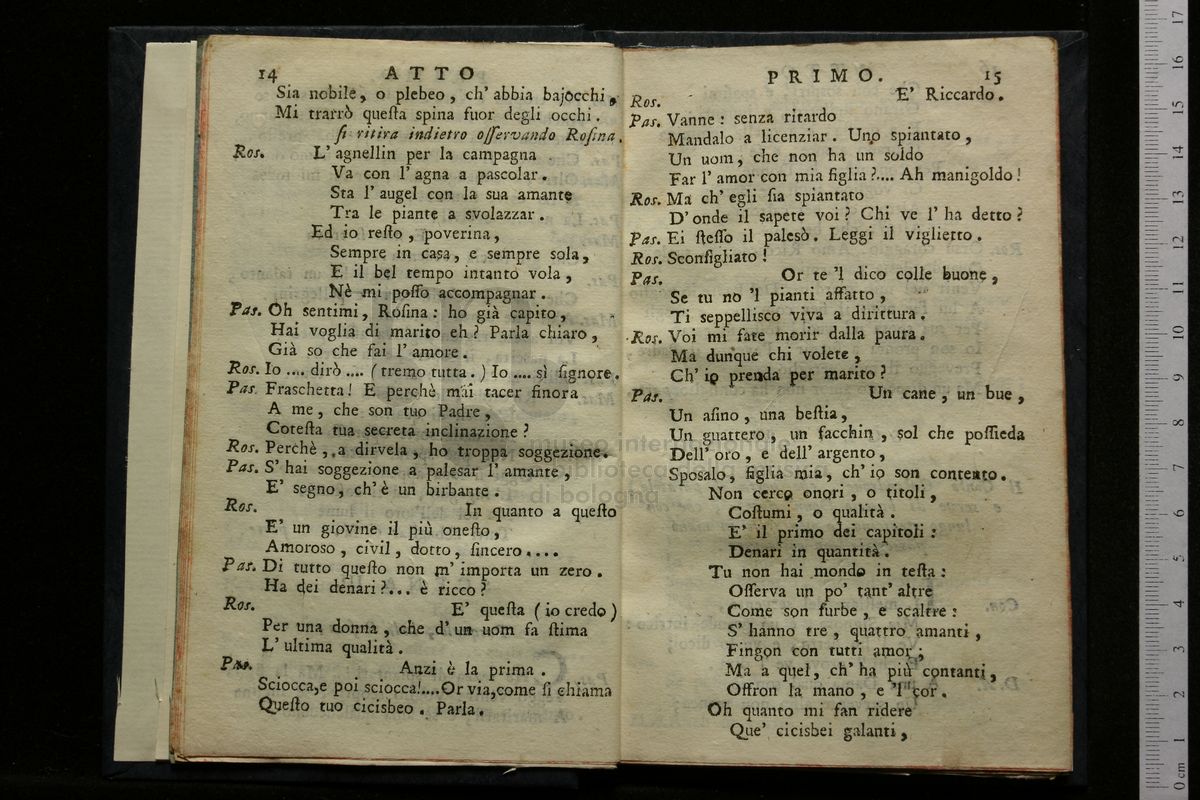 14 ATTO
Sia nobile, o plebeo, ch' abbia bajocchi,
Mi trarrò queſta spina fuor degli occhi.
ſi ritira indietro oſſervando Roſina.
Ros. L' agnellin per la campagna
Va con l' agna a pascolar.
Sta l' augel con la sua amante
Tra le piante a svolazzar.
Ed io reſto, poverina,
Sempre in casa, e sempre sola,
E il bel tempo intanto vola,
Nè mi poſſo accompagnar.
Pas. Oh sentimi, Roſina: ho già capito,
Hai voglia di marito eh? Parla chiaro,
Già so che fai l' amore.
Ros. Io .... dirò .... (tremo tutta.) Io .... sì ſignore.
Pas. Fraschetta! E perchè mai tacer finora
A me, che son tuo Padre,
Coteſta tua secreta inclinazione?
Ros. Perchè, a dirvela, ho troppa soggezione.
Pas. S' hai soggezione a palesar l' amante,
E' segno, ch' è un birbante.
Ros. In quanto a queſto
E' un giovine il più oneſto,
Amoroso, civil, dotto, ſincero....
Pas. Di tutto queſto non m' importa un zero.
Ha dei denari?... è ricco?
Ros. E' queſta (io credo)
Per una donna, che d' un uom fa ſtima
L' ultima qualità.
Pas. Anzi è la prima.
Sciocca, e poi sciocca!....Or via, come ſi chiama
Queſto tuo cicisbeo. Parla.
PRIMO. 15
Ros. E' Riccardo.
Pas. Vanne: senza ritardo
Mandalo a licenziar. Uno spiantato,
Un uom, che non ha un soldo
Far l' amor con mia figlia?.... Ah manigoldo!
Ros. Ma ch' egli ſia spiantato
D' onde il sapete voi? Chi ve l' ha detto?
Pas. Ei ſteſſo il palesò. Leggi il viglietto.
Ros. Sconſigliato!
Pas. Or te 'l dico colle buone,
Se tu no 'l pianti affatto,
Ti seppellisco viva a dirittura.
Ros. Voi mi fate morir dalla paura.
Ma dunque chi volete,
Ch' io prenda per marito?
Pas. Un cane, un bue,
Un aſino, una beſtia,
Un guattero, un facchin, sol che poſſieda
Dell' oro, e dell' argento,
Sposalo, figlia mia, ch' io son contento.
Non cerco onori, o titoli,
Coſtumi, o qualità.
E' il primo dei capitoli:
Denari in quantità.
Tu non hai mondo in teſta:
Oſſerva un po' tant' altre
Come son furbe, e scaltre:
S' hanno tre, quattro amanti,
Fingon con tutti amor;
Ma a quel, ch' ha più contanti,
Offron la mano, e 'l cor.
Oh quanto mi fan ridere
Que' cicisbei galanti,
museo internazionale
e biblioteca della musica
di bologna
0 cm 1 2 3 4 5 6 7 8 9 10 11 12 13 14 15 16 17